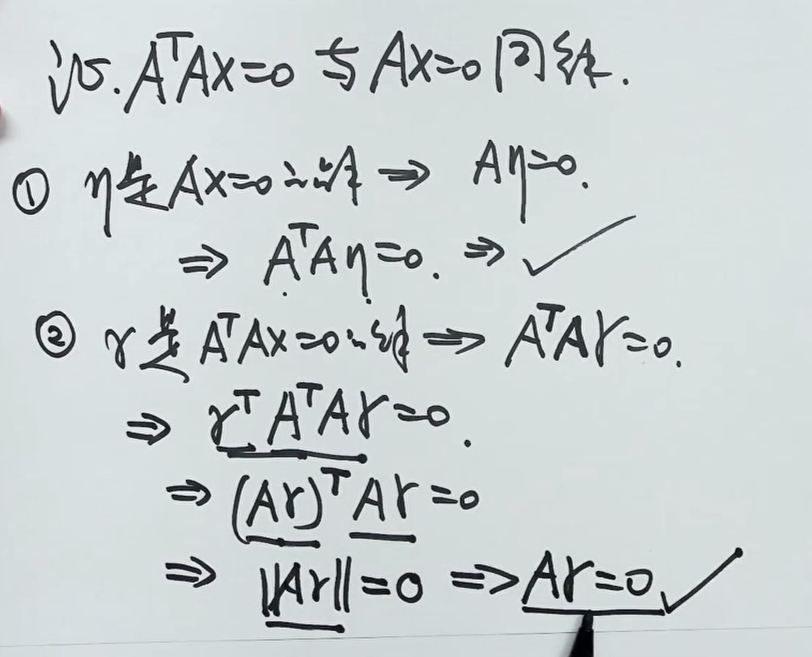 证. AᵀAx=0 与 Ax=0 同解.
① η是 Ax=0 的解 ⇒ Aη=0.
⇒ AᵀAη=0. ⇒ ✓
② γ是 AᵀAx=0 的解 ⇒ AᵀAγ=0.
⇒ γᵀAᵀAγ=0.
⇒ (Aγ)ᵀAγ=0
⇒ ||Aγ||=0 ⇒ Aγ=0 ✓